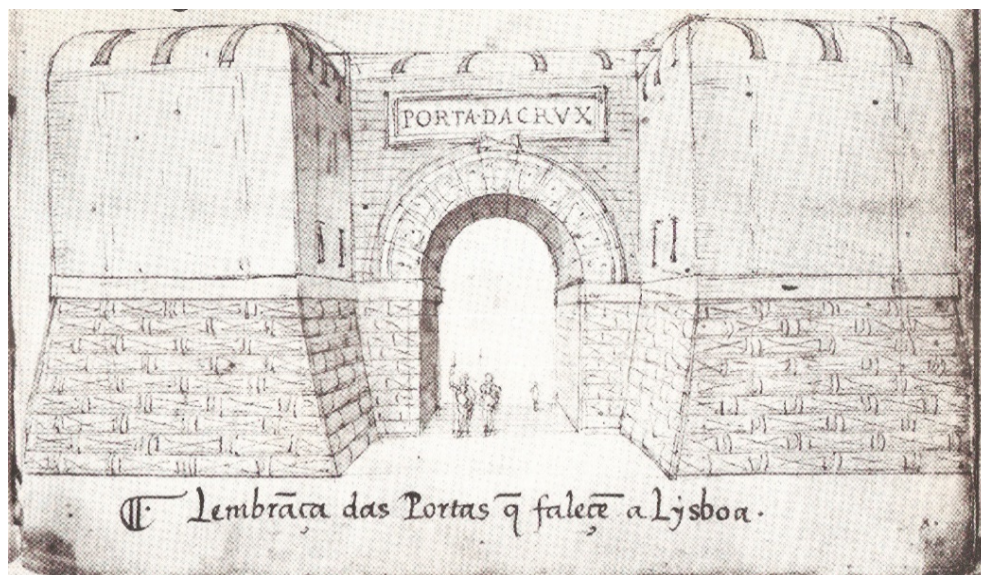 PORTA·DACRVX
₵· Lembrãça das Portas q̃ faleçẽ a Lysboa·